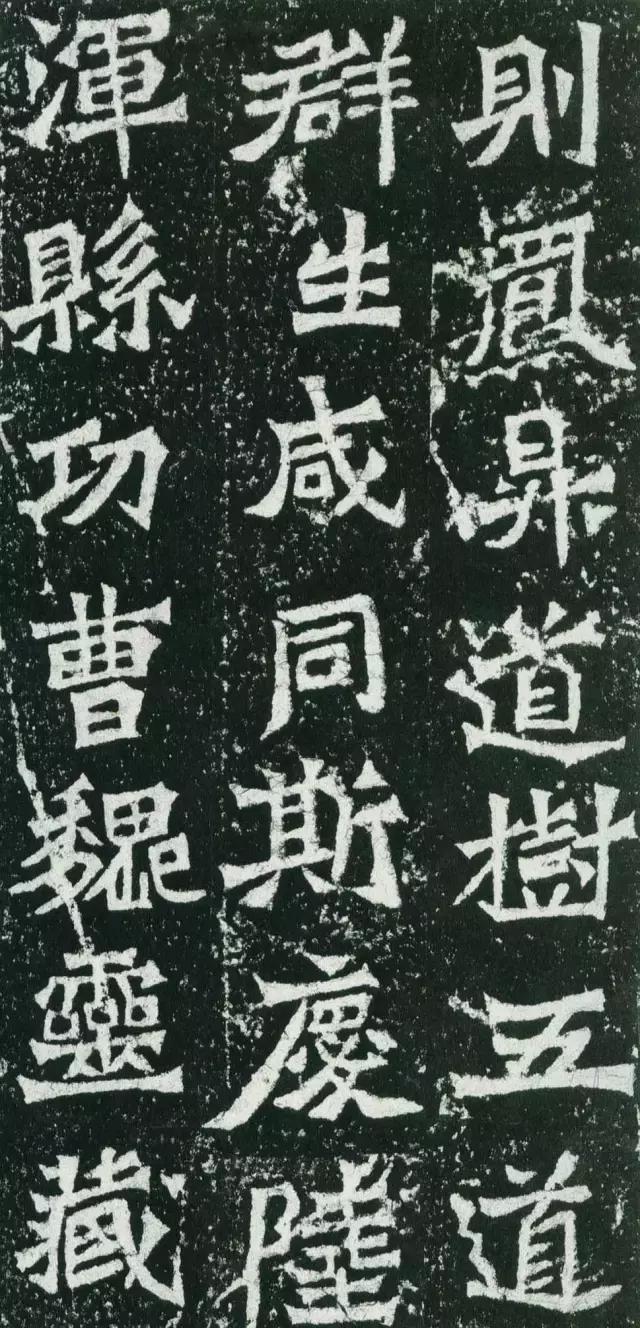 則鳳昇道樹五道
群生咸同斯慶陸
渾縣功曹魏靈藏